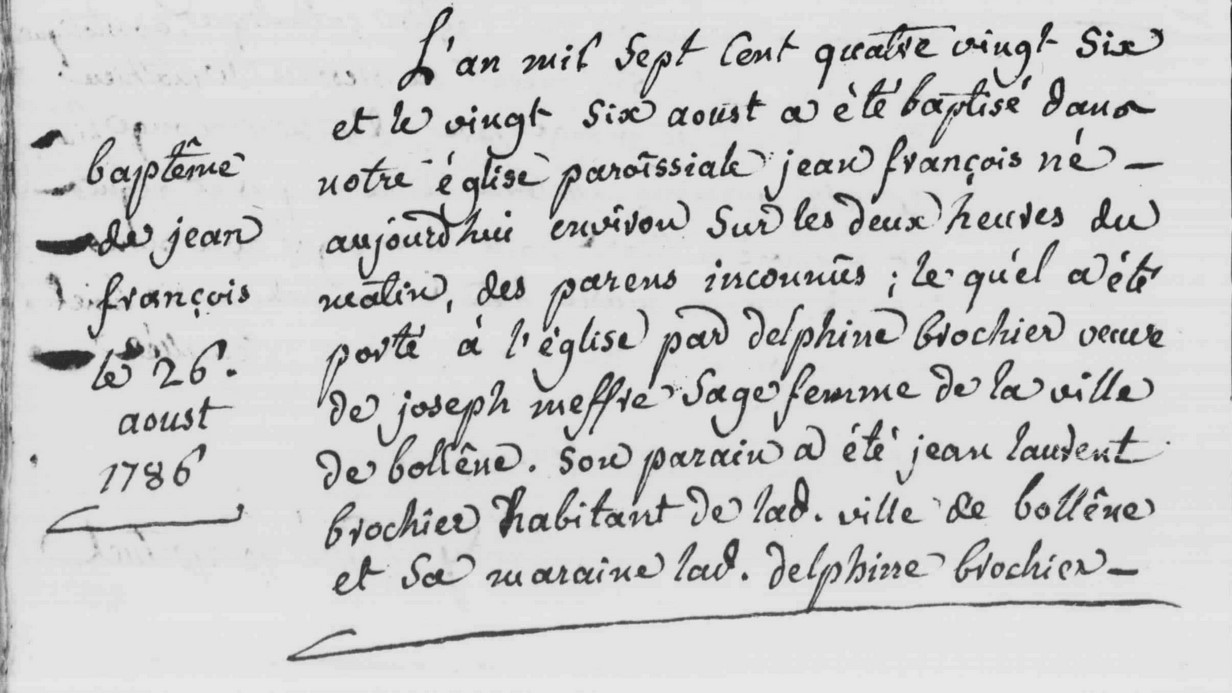 baptême
de jean
françois
le 26.
aoust
1786
L'an mil Sept Cent quatre vingt Six
et le vingt Six aoust a été baptisé dans
notre église paroissiale jean françois né —
aujourd'hui environ Sur les deux heures du
matin, des parens inconnus ; le quel a été
porté à l'église par delphine brochier veuve
de joseph meffre Sage femme de la ville
de bollêne. Son parain a été jean laurent
brochier habitant de lad. ville de bollêne
et Sa maraine lad. delphine brochier —